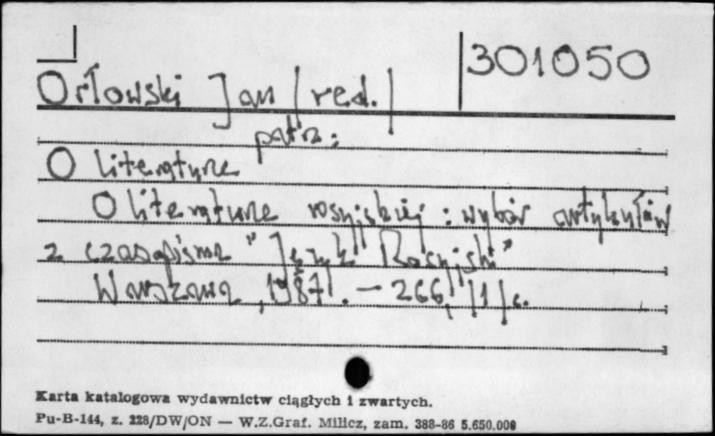 301050
Orłowski Jan (red.)
patrz:
O literaturze
O literaturze rosyjskiej : wybór artykułów
z czasopisma "Język Rosyjski"
Warszawa, 1987. — 266, |1| s.
Karta katalogowa wydawnictw ciągłych i zwartych.
Pu-B-144, z. 228/DW/ON — W.Z.Graf. Milicz, zam. 388-86 5.650.000